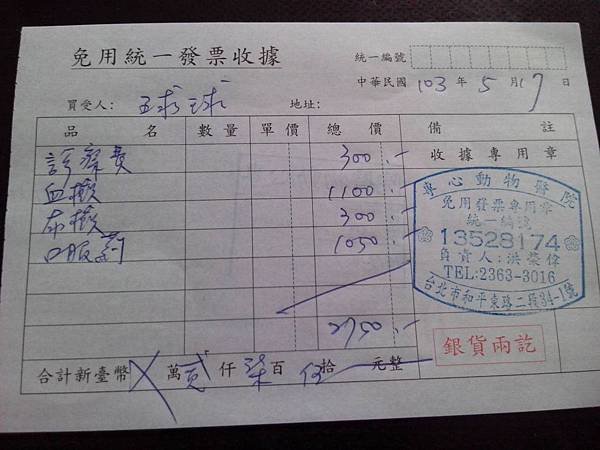 免用統一發票收據
統一編號
中華民國 103 年 5 月 17 日
買受人: 王球球 地址:
品 名 數量 單價 總 價 備 註
收據專用章
診療費 300.-
血檢 1100.-
尿檢 300.-
口服葯 1050.-
2750.-
專心動物醫院
免用發票專用章
統一編號
13528174
負責人:洪榮偉
TEL:2363-3016
台北市和平東路二段34-1號
銀貨兩訖
合計新臺幣 X 萬 貳 仟 柒 百 伍 拾 元整